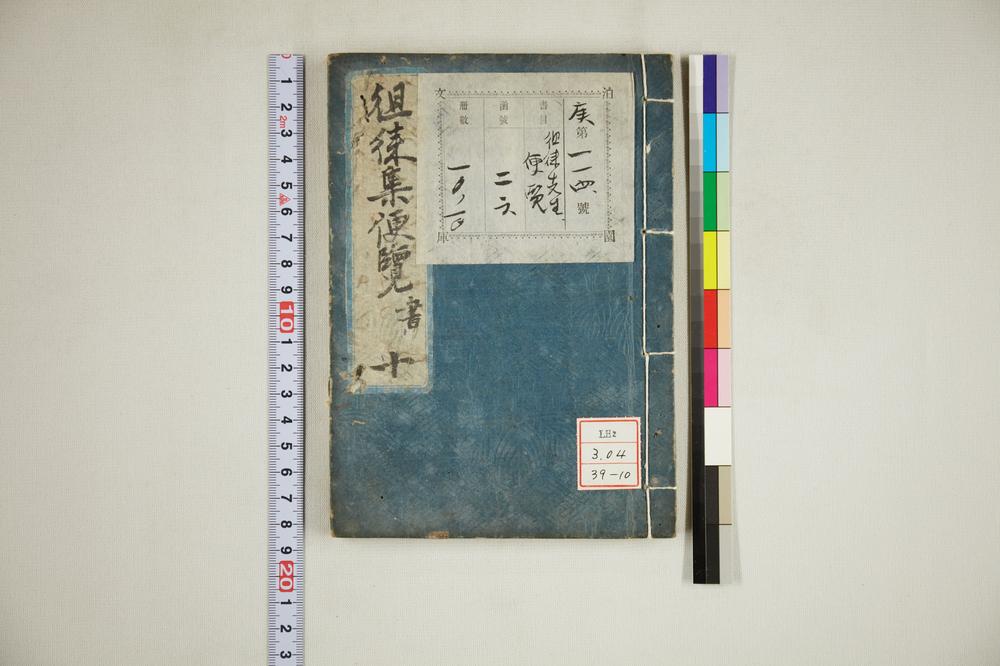 徂徠集便覽 書 十
泊園文庫
庚第一一四號
書目 徂徠先生便覧
函號 二六
冊數
LH2
3.04
39-10
1 2 3 4 5 6 7 8 9 10 1 2 3 4 5 6 7 8 9 20 1 2 3
2m